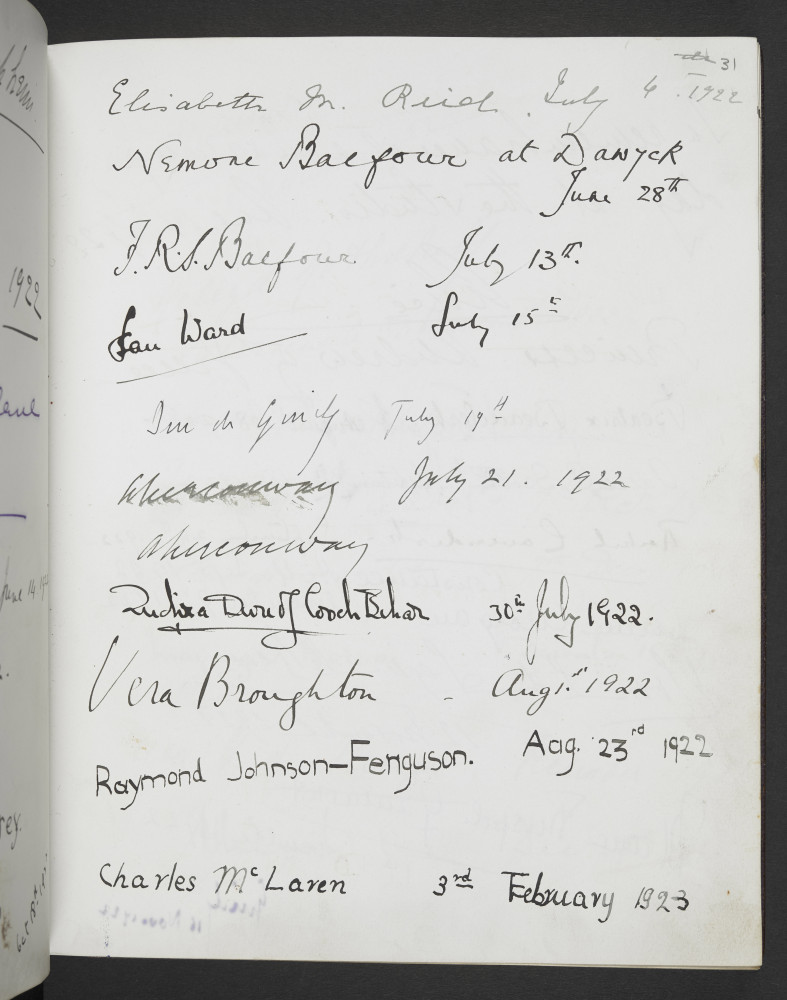 31
Elisabeth M. Reid. July 4. 1922
Nemone Balfour at Dawyck
June 28th
F.R.S. Balfour July 13th.
Ian Ward July 15th
July 19th
Aberconway July 21. 1922
Aberconway
Indira Devi of Cooch Behar 30th July 1922.
Vera Broughton - Aug 1st 1922
Raymond Johnson-Ferguson. Aug. 23rd 1922
Charles McLaren 3rd February 1923
1922
June 14
rey.